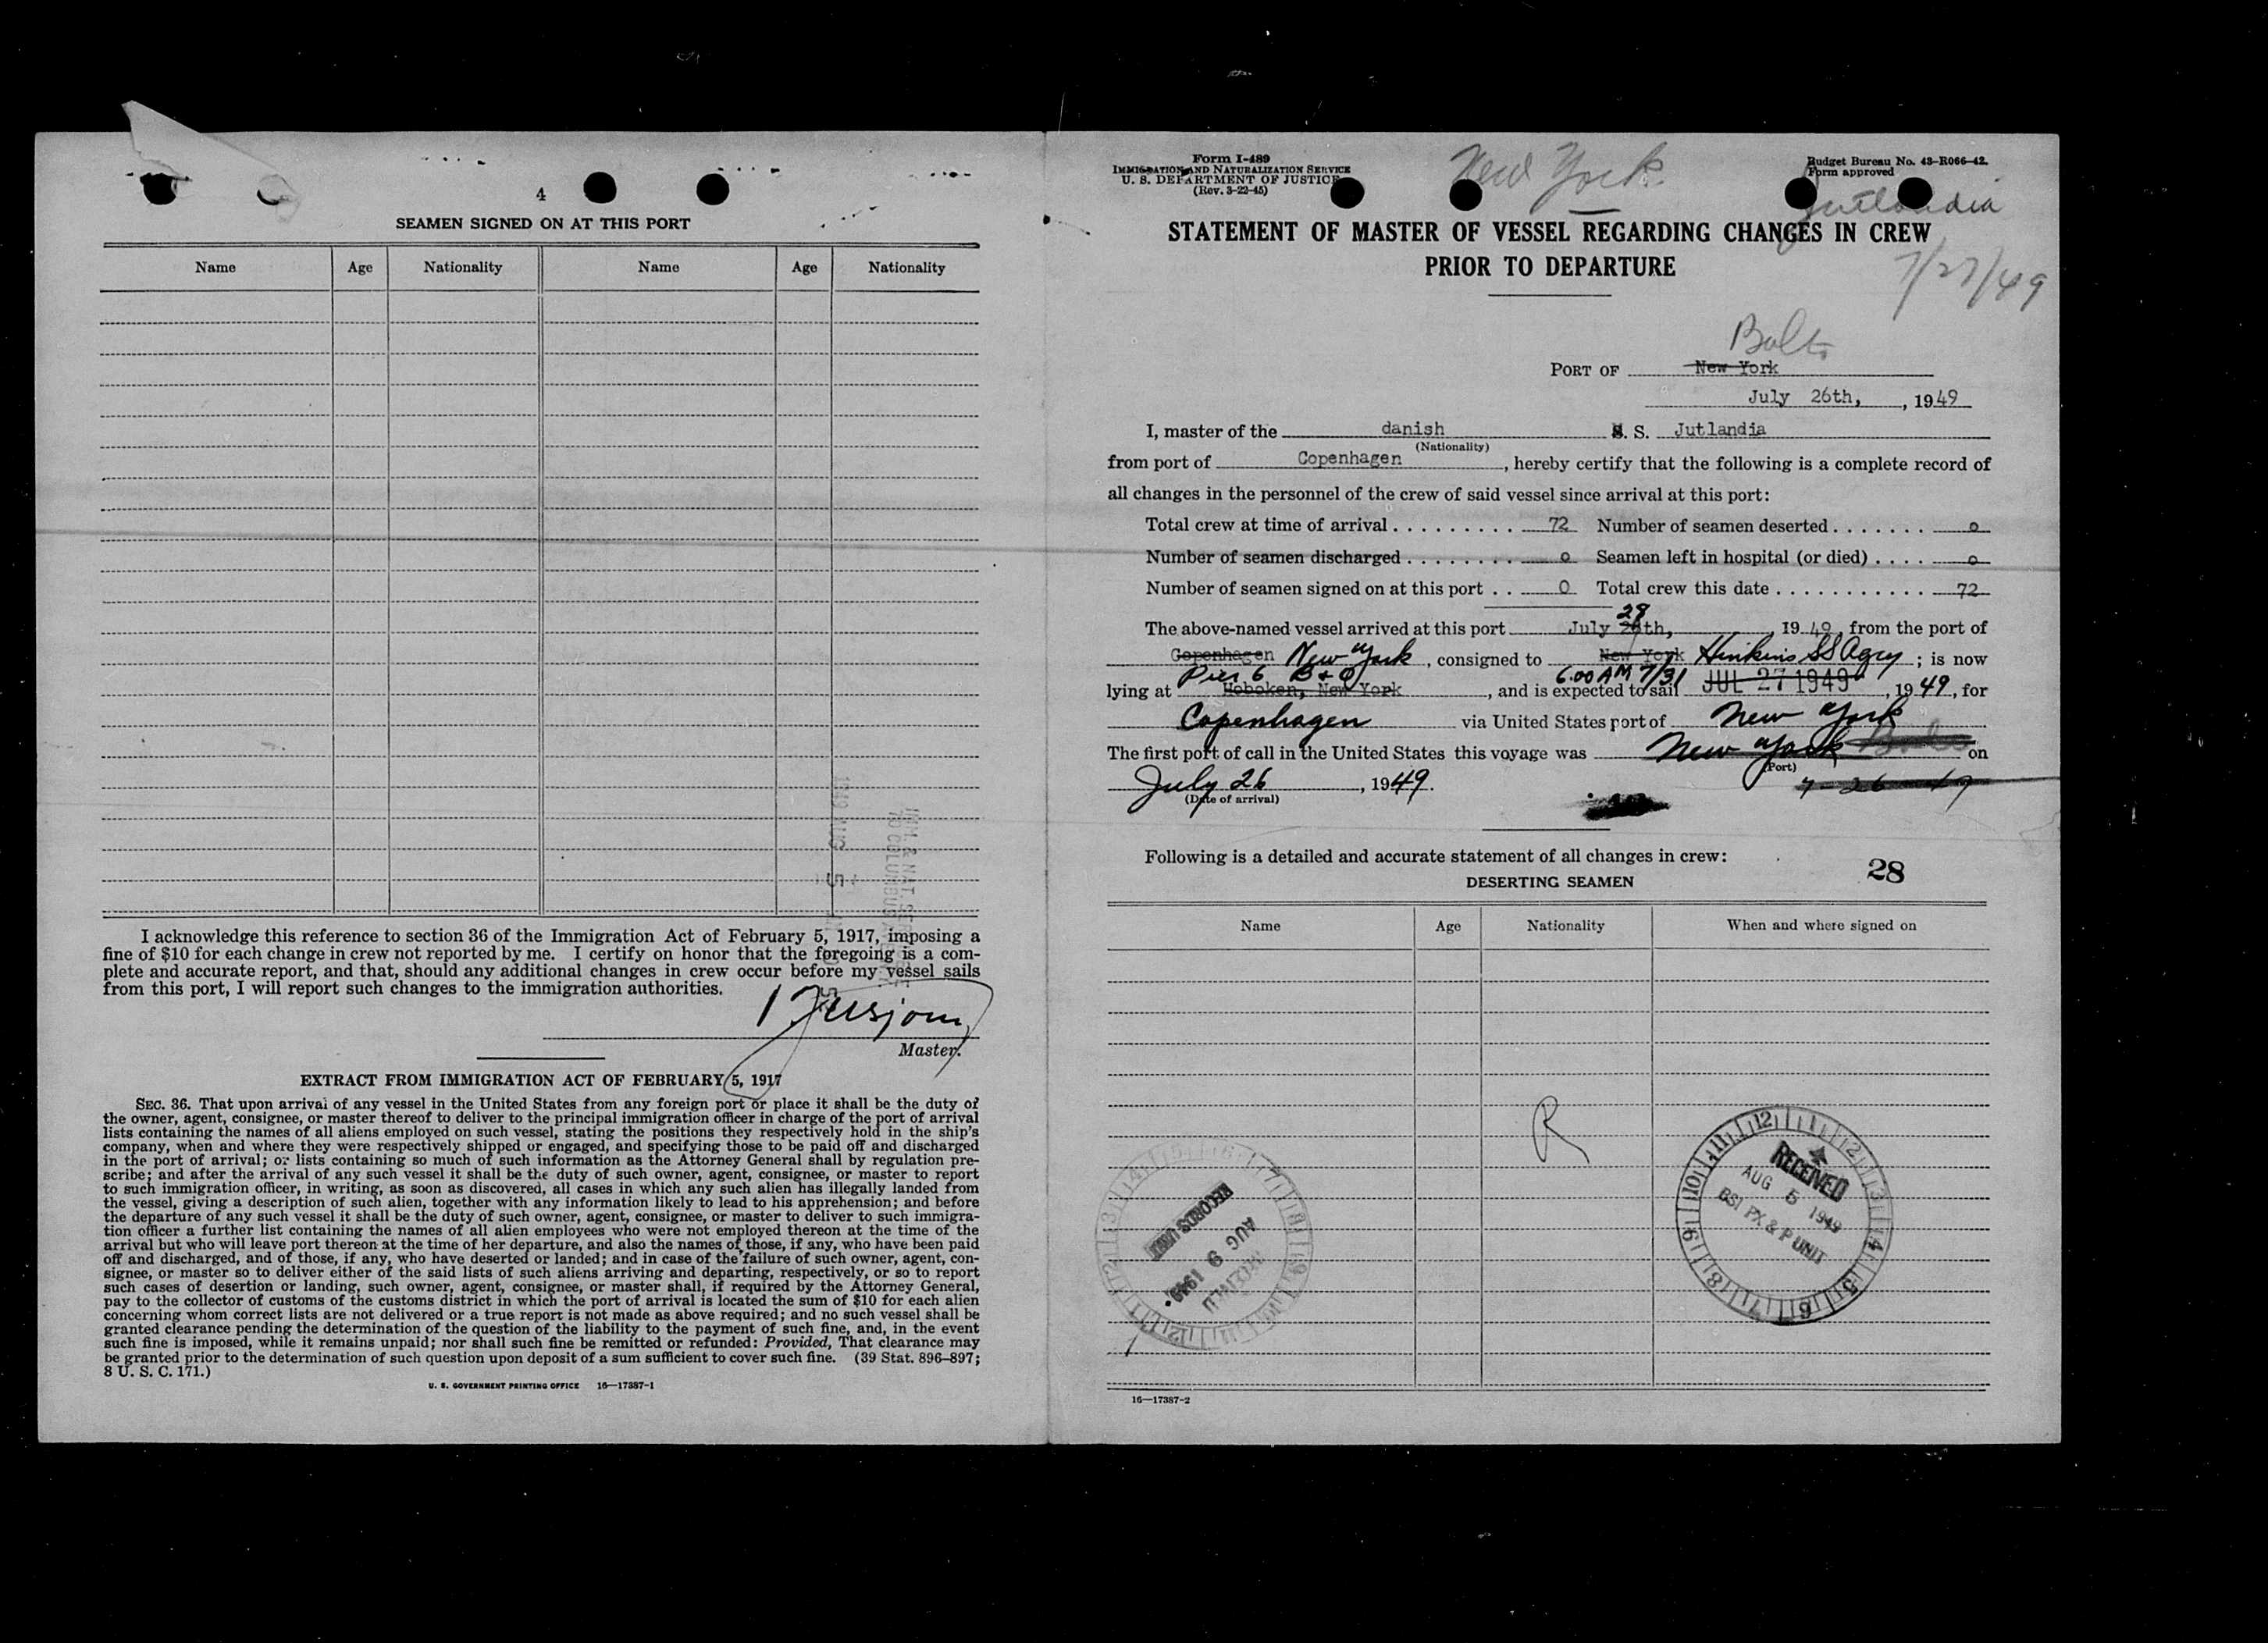 4
SEAMEN SIGNED ON AT THIS PORT
Name Age Nationality Name Age Nationality
I acknowledge this reference to section 36 of the Immigration Act of February 5, 1917, imposing a
fine of $10 for each change in crew not reported by me. I certify on honor that the foregoing is a com-
plete and accurate report, and that, should any additional changes in crew occur before my vessel sails
from this port, I will report such changes to the immigration authorities.
Master.
EXTRACT FROM IMMIGRATION ACT OF FEBRUARY 5, 1917
SEC. 36. That upon arrival of any vessel in the United States from any foreign port or place it shall be the duty of
the owner, agent, consignee, or master thereof to deliver to the principal immigration officer in charge of the port of arrival
lists containing the names of all aliens employed on such vessel, stating the positions they respectively hold in the ship's
company, when and where they were respectively shipped or engaged, and specifying those to be paid off and discharged
in the port of arrival; or lists containing so much of such information as the Attorney General shall by regulation pre-
scribe; and after the arrival of any such vessel it shall be the duty of such owner, agent, consignee, or master to report
to such immigration officer, in writing, as soon as discovered, all cases in which any such alien has illegally landed from
the vessel, giving a description of such alien, together with any information likely to lead to his apprehension; and before
the departure of any such vessel it shall be the duty of such owner, agent, consignee, or master to deliver to such immigra-
tion officer a further list containing the names of all alien employees who were not employed thereon at the time of the
arrival but who will leave port thereon at the time of her departure, and also the names of those, if any, who have been paid
off and discharged, and of those, if any, who have deserted or landed; and in case of the failure of such owner, agent, con-
signee, or master so to deliver either of the said lists of such aliens arriving and departing, respectively, or so to report
such cases of desertion or landing, such owner, agent, consignee, or master shall, if required by the Attorney General,
pay to the collector of customs of the customs district in which the port of arrival is located the sum of $10 for each alien
concerning whom correct lists are not delivered or a true report is not made as above required; and no such vessel shall be
granted clearance pending the determination of the question of the liability to the payment of such fine, and, in the event
such fine is imposed, while it remains unpaid; nor shall such fine be remitted or refunded: Provided, That clearance may
be granted prior to the determination of such question upon deposit of a sum sufficient to cover such fine. (39 Stat. 896–897;
8 U. S. C. 171.)
U. S. GOVERNMENT PRINTING OFFICE 16—17387-1
Form I-489
IMMIGRATION AND NATURALIZATION SERVICE
U. S. DEPARTMENT OF JUSTICE
(Rev. 3-22-45)
New York
Budget Bureau No. 43-R066-42.
Form approved
Jutlandia
STATEMENT OF MASTER OF VESSEL REGARDING CHANGES IN CREW
PRIOR TO DEPARTURE
7/27/49
Balto
PORT OF New York
July 26th, , 1949
I, master of the danish S. S. Jutlandia
(Nationality)
from port of Copenhagen , hereby certify that the following is a complete record of
all changes in the personnel of the crew of said vessel since arrival at this port:
Total crew at time of arrival 72 Number of seamen deserted 0
Number of seamen discharged 0 Seamen left in hospital (or died) 0
Number of seamen signed on at this port 0 Total crew this date 72
28
The above-named vessel arrived at this port July 26th, , 19 49, from the port of
Copenhagen New York , consigned to New York Hinkins SS Agcy ; is now
Pier 6 B+O 6.00 AM 7/31
lying at Hoboken, New York , and is expected to sail JUL 27 1949 , 19 49, for
Copenhagen via United States port of New York
The first port of call in the United States this voyage was New York on
(Port)
July 26 , 1949.
(Date of arrival)
7-26-49
Following is a detailed and accurate statement of all changes in crew:
28
DESERTING SEAMEN
Name Age Nationality When and where signed on
R
RECORDS UNIT
AUG 9 1949
RECEIVED
RECEIVED
AUG 5 1949
BSI PX & P UNIT
16—17387-2